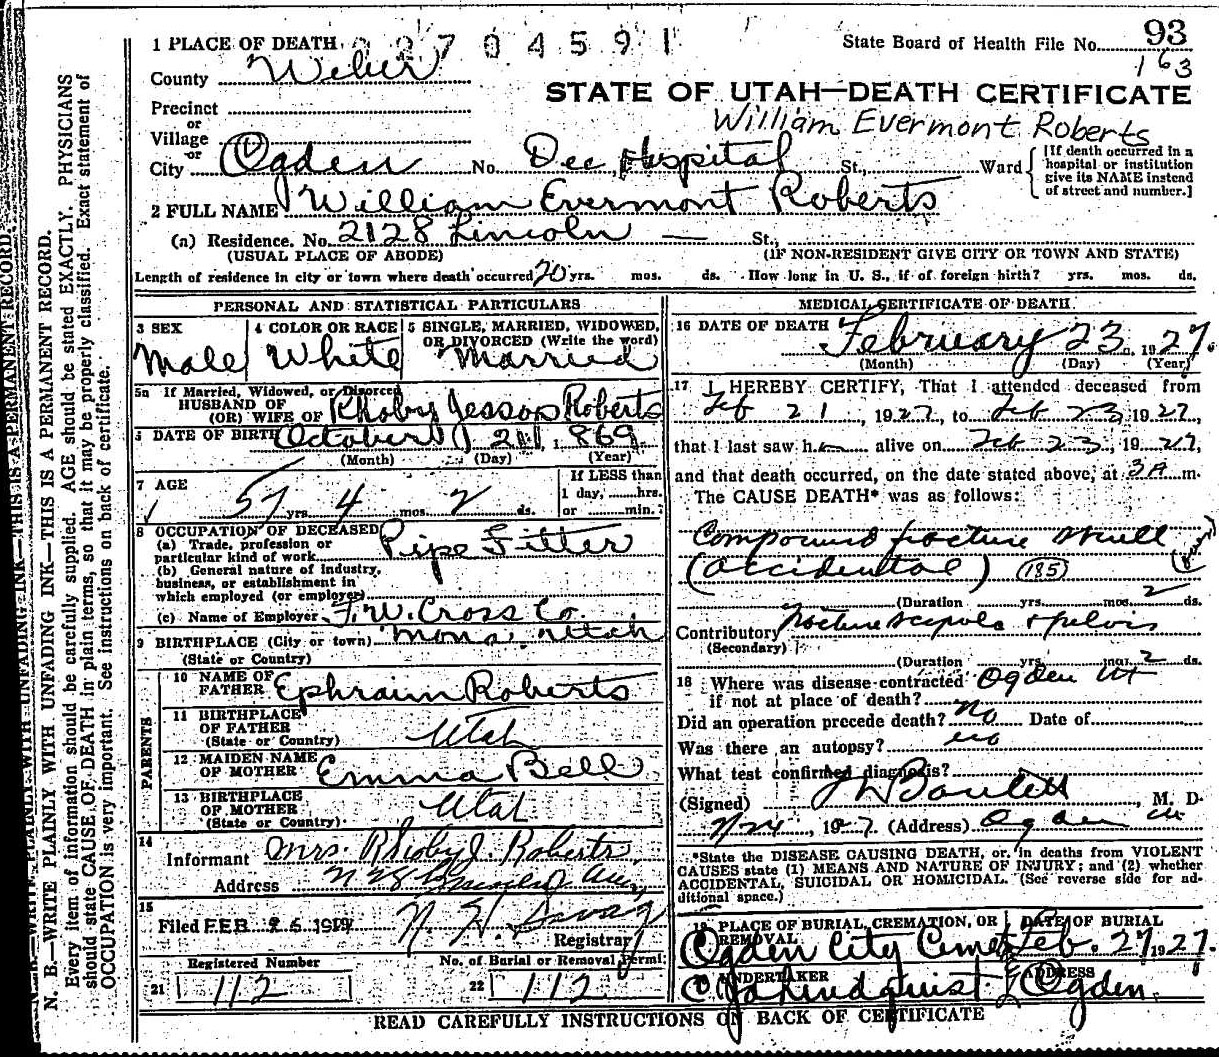 1 PLACE OF DEATH
State Board of Health File No. 93
163
County Weber
STATE OF UTAH—DEATH CERTIFICATE
Precinct
William Evermont Roberts
or
Village
or
City Ogden No. Dee Hospital St., Ward
[If death occurred in a hospital or institution give its NAME instead of street and number.]
2 FULL NAME William Evermont Roberts
(a) Residence. No. 2128 Lincoln — St.,
(USUAL PLACE OF ABODE) (IF NON-RESIDENT GIVE CITY OR TOWN AND STATE)
Length of residence in city or town where death occurred 20 yrs. mos. ds. How long in U. S., if of foreign birth? yrs. mos. ds.
PERSONAL AND STATISTICAL PARTICULARS
3 SEX Male
4 COLOR OR RACE White
5 SINGLE, MARRIED, WIDOWED, OR DIVORCED (Write the word) Married
5a If Married, Widowed, or Divorced
HUSBAND OF
(OR) WIFE OF Rhoby Jessop Roberts
6 DATE OF BIRTH October 21 1869
(Month) (Day) (Year)
7 AGE 57 yrs. 4 mos. 2 ds.
If LESS than
1 day, hrs.
or min.
8 OCCUPATION OF DECEASED
(a) Trade, profession or
particular kind of work Pipe Fitter
(b) General nature of industry,
business, or establishment in
which employed (or employer)
(c) Name of Employer F.W. Cross Co.
9 BIRTHPLACE (City or town) Mona Utah
(State or Country)
PARENTS
10 NAME OF
FATHER Ephraim Roberts
11 BIRTHPLACE
OF FATHER Utah
(State or Country)
12 MAIDEN NAME
OF MOTHER Emma Bell
13 BIRTHPLACE
OF MOTHER Utah
(State or Country)
14
Informant Mrs. Rhoby J. Roberts
Address
15
Filed FEB 26
Registrar
Registered Number No. of Burial or Removal Permit
21 112 22 112
MEDICAL CERTIFICATE OF DEATH
16 DATE OF DEATH February 23, 1927.
(Month) (Day) (Year)
17 I HEREBY CERTIFY, That I attended deceased from
Feb 21, 1927, to Feb 23, 1927,
that I last saw h alive on Feb 23, 1927,
and that death occurred, on the date stated above, at 3 A m.
The CAUSE DEATH* was as follows:
Compound fracture skull
(accidental) (185)
(Duration yrs. mos. 2 ds.
Contributory fracture scapula & pelvis
(Secondary)
(Duration yrs. mos. 2 ds.
18 Where was disease contracted Ogden Ut
if not at place of death?
Did an operation precede death? no Date of
Was there an autopsy? no
What test confirmed diagnosis?
(Signed) , M. D.
1927. (Address) Ogden
*State the DISEASE CAUSING DEATH, or, in deaths from VIOLENT
CAUSES state (1) MEANS AND NATURE OF INJURY; and (2) whether
ACCIDENTAL, SUICIDAL OR HOMICIDAL. (See reverse side for ad-
ditional space.)
19 PLACE OF BURIAL, CREMATION, OR REMOVAL DATE OF BURIAL
Ogden City Cemet Feb. 27 1927.
20 UNDERTAKER ADDRESS
Lindquist Ogden.
READ CAREFULLY INSTRUCTIONS ON BACK OF CERTIFICATE
N. B.—WRITE PLAINLY WITH UNFADING INK—THIS IS A PERMANENT RECORD.
Every item of information should be carefully supplied. AGE should be stated EXACTLY. PHYSICIANS
should state CAUSE OF DEATH in plain terms, so that it may be properly classified. Exact statement of
OCCUPATION is very important. See instructions on back of certificate.